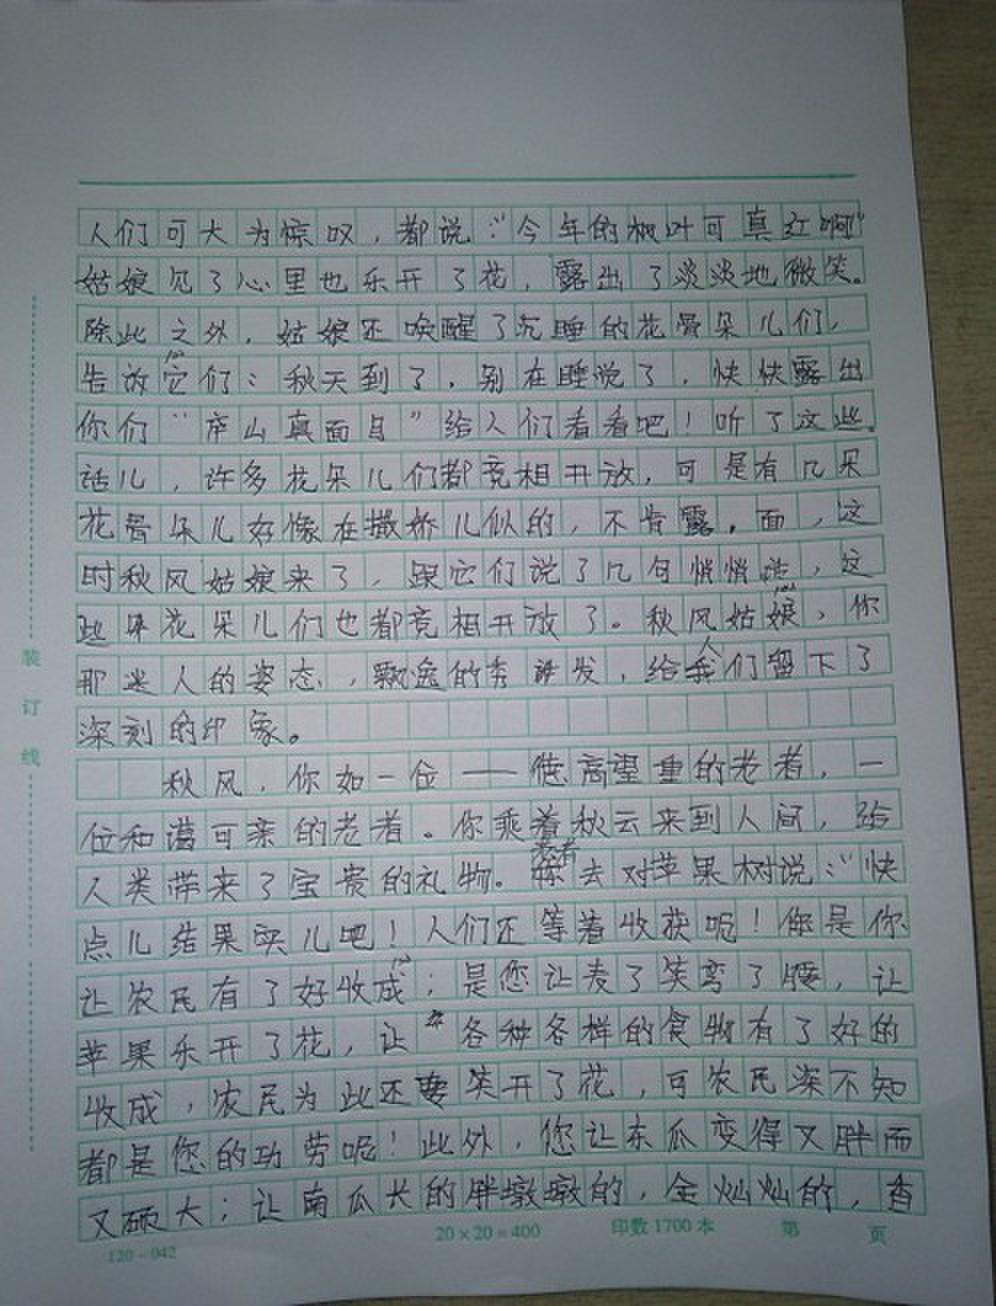 人们可大为惊叹，都说：“今年的枫叶可真红啊”
姑娘见了心里也乐开了花，露出了淡淡地微笑。
除此之外，姑娘还唤醒了沉睡的花骨朵儿们，
告放它们：秋天到了，别在睡说了，快快露出
你们“庐山真面目”给人们看看吧！听了这些
话儿，许多花朵儿们都竞相开放，可是有几朵
花骨朵儿好像在撒娇儿似的，不肯露面，这
时秋风姑娘来了，跟它们说了几句悄悄话，这
些花朵儿们也都竞相开放了。秋风姑娘，你
那迷人的姿态，飘逸的秀发，给人们留下了
深刻的印象。
秋风，你如一位——德高望重的老者，一
位和蔼可亲的老者。你乘着秋云来到人间，给
人类带来了宝贵的礼物。你去对苹果树说：“快
点儿结果实儿吧！人们还等着收获呢！您是你
让农民有了好收成；是您让麦子笑弯了腰，让
苹果乐开了花，让各种各样的食物有了好的
收成，农民为此还要笑开了花，可农民深不知
都是您的功劳呢！此外，您让东瓜变得又胖而
又硕大；让南瓜长的胖墩墩的，金灿灿的，香
装
订
线
120-042
20×20=400
印数1700本
第
页